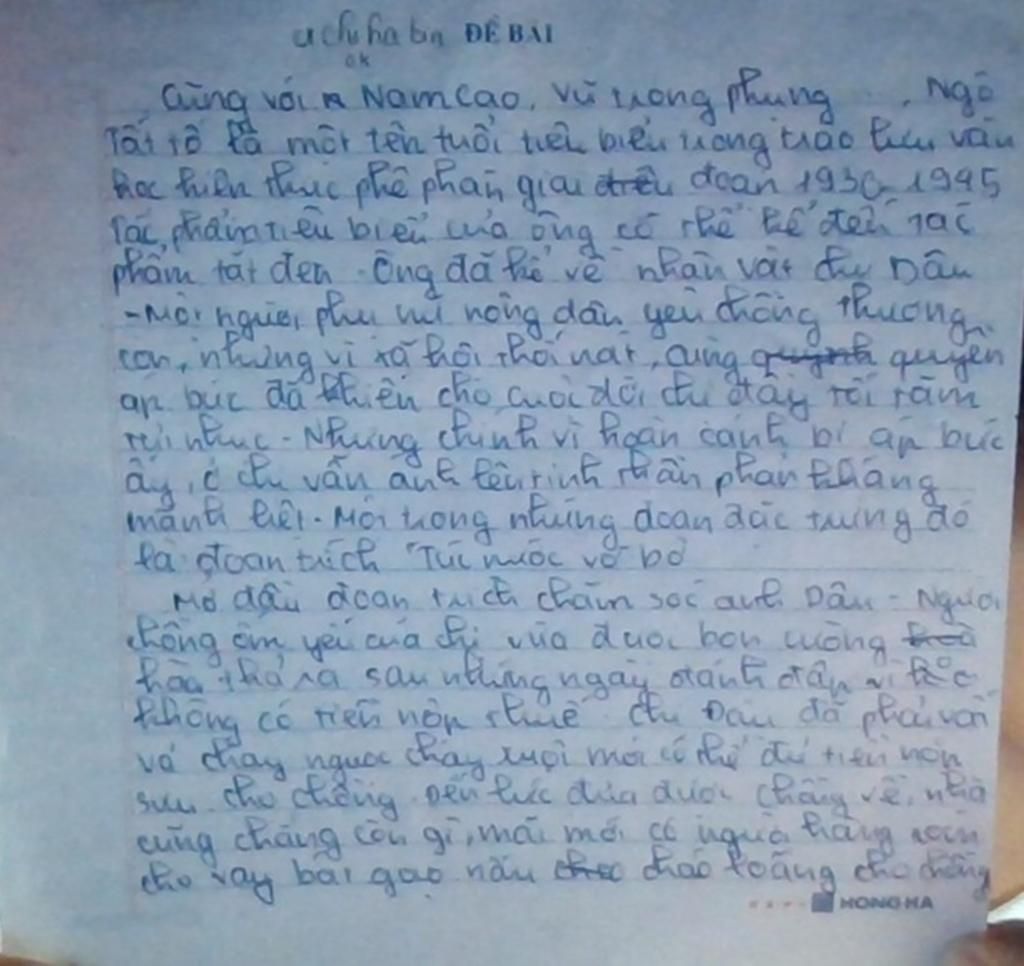 ĐỀ BÀI
ok
Cùng với Nam Cao, Vũ Trọng Phụng , Ngô
Tất Tố là một tên tuổi tiêu biểu trong trào lưu văn
học hiện thực phê phán giai đoạn 1930-1945
Tác phẩm tiêu biểu của ông có thể kể đến tác
phẩm tắt đèn. Ông đã kể về nhân vật chị Dậu
- Một người phụ nữ nông dân yêu chồng thương
con, nhưng vì xã hội thối nát, cùng quyền
áp bức đã khiến cho cuộc đời chị đầy rối rắm
tủi nhục. Nhưng chính vì hoàn cảnh bị áp bức
ấy, ở chị vẫn ánh lên tinh thần phản kháng
mãnh liệt. Một trong những đoạn đặc trưng đó
là đoạn trích "Tức nước vỡ bờ
Mở đầu đoạn trích chăm sóc anh Dậu - Người
chồng ốm yếu của chị vừa được bọn cường
hào thả ra sau những ngày đánh đập vì
không có tiền nộp thuế. Chị Dậu đã phải vất
vả chạy ngược chạy xuôi mới có thể đủ tiền nộp
sưu cho chồng. Đến lúc đưa được chồng về, nhà
cũng chẳng còn gì, mãi mới có người hàng xóm
cho vay bát gạo nấu cháo loãng cho chồng
HONG HA